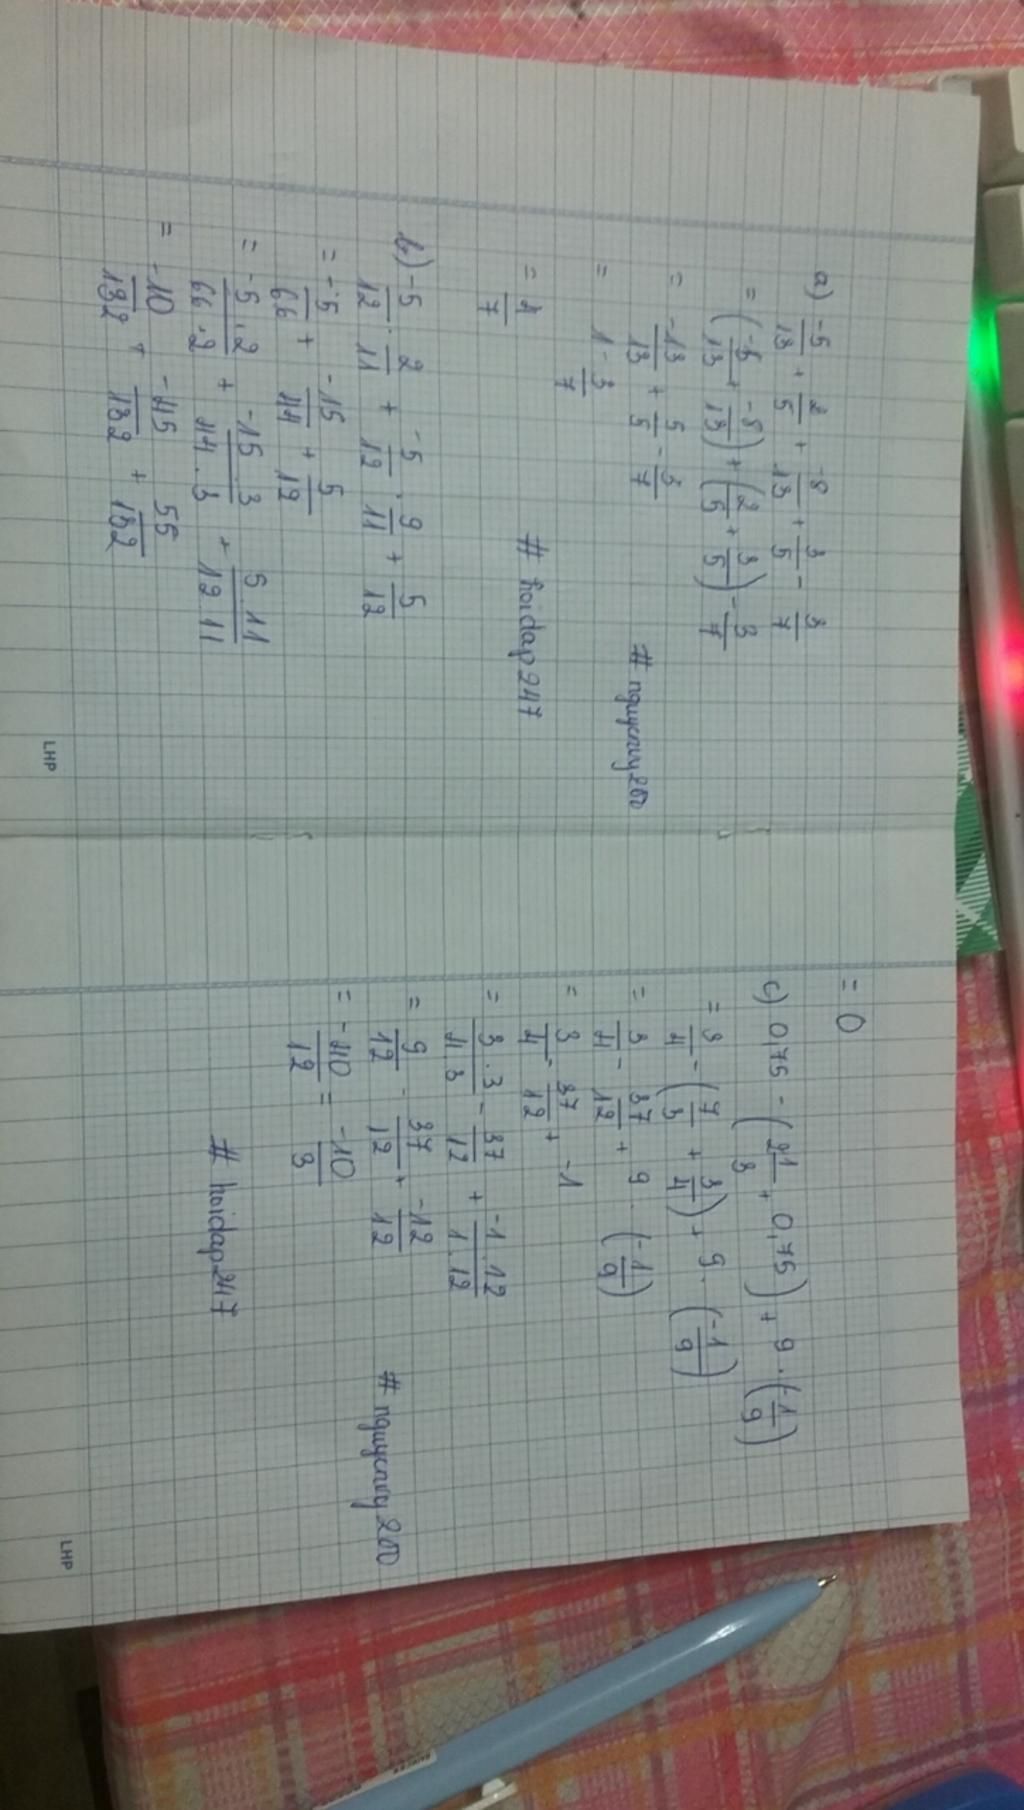 a) -5/13 + 2/5 + -8/13 + 3/5 - 3/7
= (-5/13 + -8/13) + (2/5 + 3/5) - 3/7
= -13/13 + 5/5 - 3/7
= 1 - 3/7
= 4/7
# nguyenvy200
# hoidap247
b) -5/12 . 2/11 + -5/12 . 9/11 + 5/12
= -5/66 + -15/44 + 5/12
= -5.2/66.2 + -15.3/44.3 + 5.11/12.11
= -10/132 + -45/132 + 55/132
LHP
= 0
c) 0,75 - (2 1/3 + 0,75) + 9 . (-1/9)
= 3/4 - (7/3 + 3/4) + 9 . (-1/9)
= 3/4 - 37/12 + 9 . (-1/9)
= 3/4 - 37/12 + -1
= 3.3/4.3 - 37/12 + -1.12/1.12
= 9/12 - 37/12 + -12/12
= -40/12 = -10/3
# nguyenvy200
# hoidap247
LHP